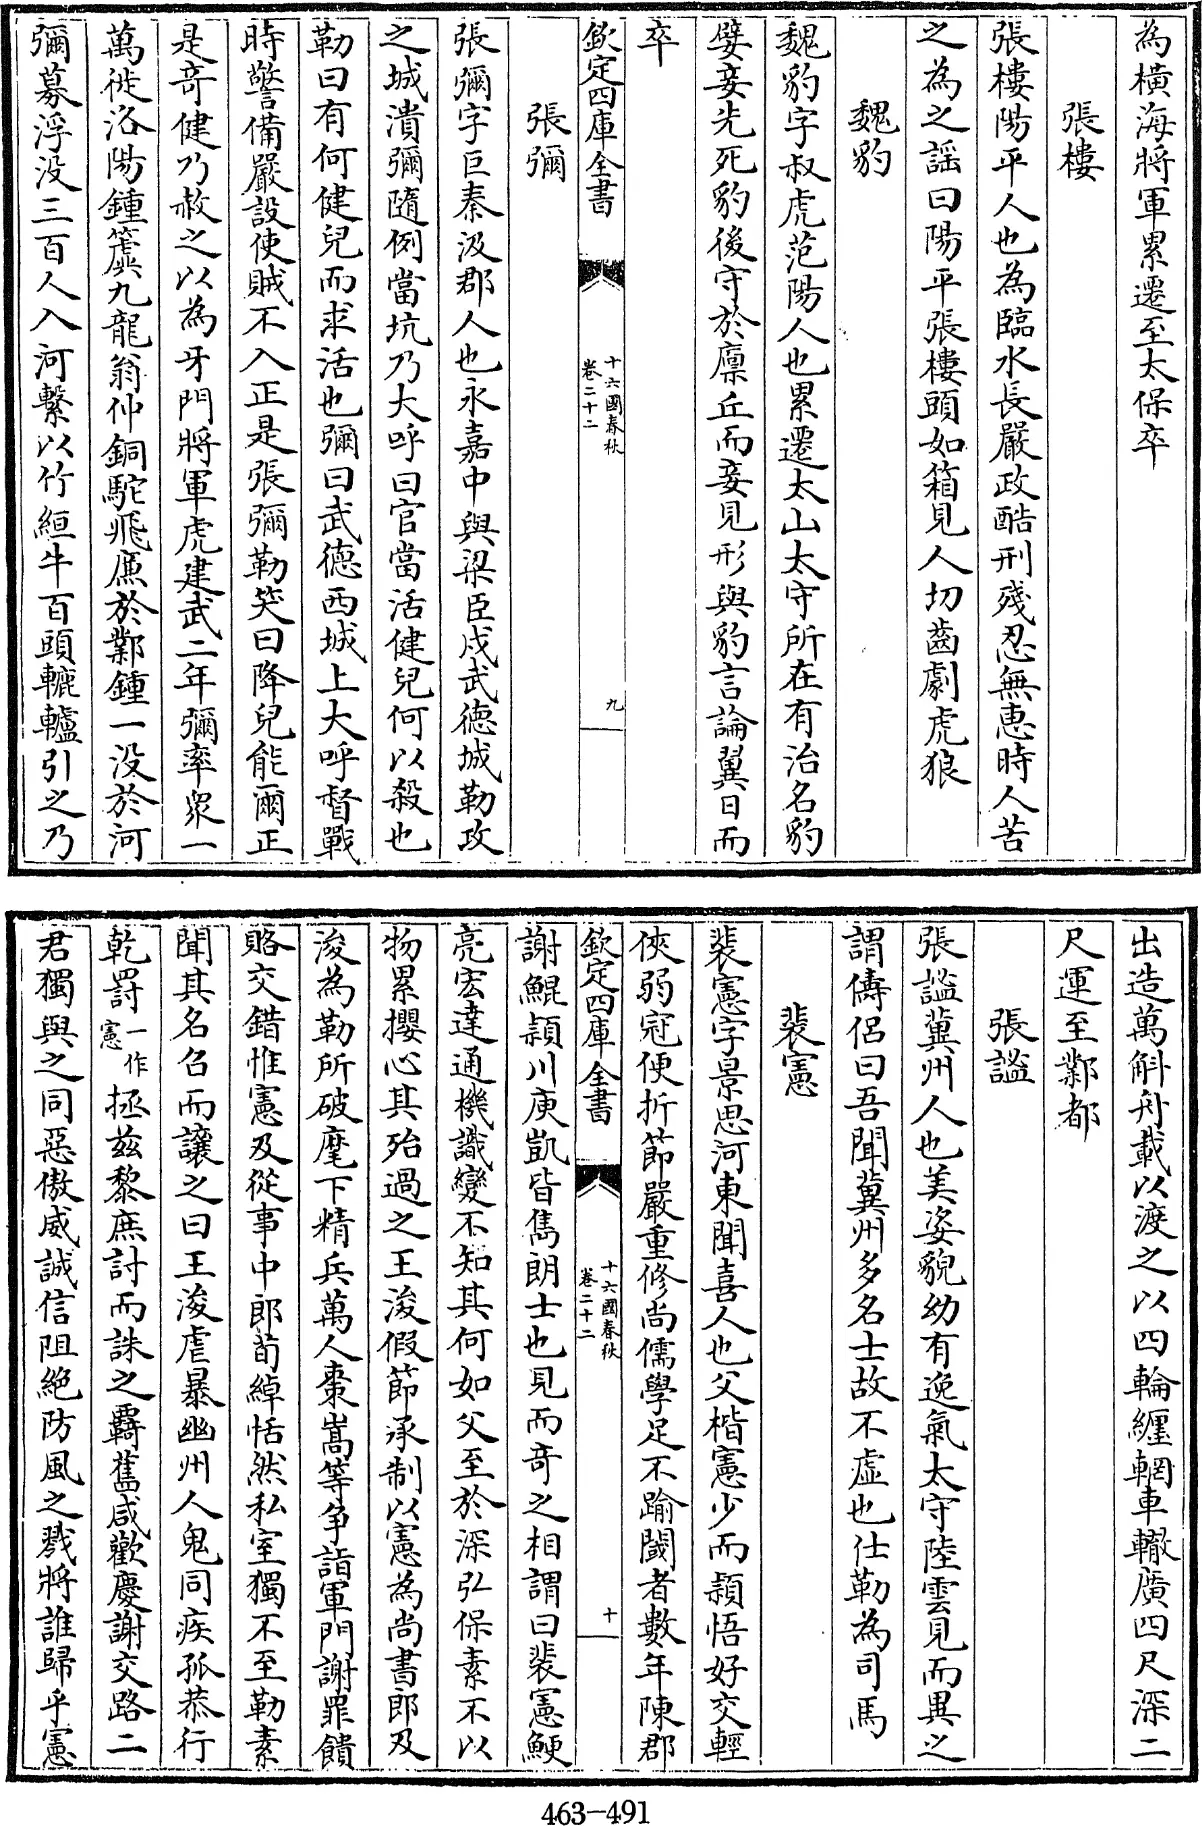 為橫海將軍累遷至太保卒
張樓
張樓陽平人也為臨水長嚴政酷刑殘忍無惠時人苦
之為之謡曰陽平張樓頭如箱見人切齒劇虎狼
魏豹
魏豹字叔虎范陽人也累遷太山太守所在有治名豹
嬖妾先死豹後守於廪丘而妾見形與豹言論翼日而
卒
欽定四庫全書
十六國春秋
卷二十二
九
張彌
張彌字巨秦汲郡人也永嘉中與梁臣戍武德城勒攻
之城潰彌隨例當坑乃大呼曰官當活健兒何以殺也
勒曰有何健兒而求活也彌曰武德西城上大呼督戰
時警備嚴設使賊不入正是張彌勒笑曰降兒能爾正
是奇健乃赦之以為牙門將軍虎建武二年彌率衆一
萬徙洛陽鍾簴九龍翁仲銅駝飛廉於鄴鍾一没於河
彌募浮没三百人入河繫以竹絙牛百頭轆轤引之乃
出造萬斛舟載以渡之以四輪纒輞車轍廣四尺深二
尺運至鄴都
張謐
張謐冀州人也美姿貌幼有逸氣太守陸雲見而異之
謂儔侣曰吾聞冀州多名士故不虚也仕勒為司馬
裴憲
裴憲字景思河東聞喜人也父楷憲少而頴悟好交輕
俠弱冠便折節嚴重修尚儒學足不踰閾者數年陳郡
欽定四庫全書
十六國春秋
卷二十二
十
謝鯤頴川庾凱皆雋朗士也見而奇之相謂曰裴憲鯁
亮宏達通機識變不知其何如父至於深弘保素不以
物累攖心其殆過之王浚假節承制以憲為尚書郎及
浚為勒所破麾下精兵萬人棗嵩等爭詣軍門謝罪饋
賂交錯惟憲及從事中郎荀綽恬然私室獨不至勒素
聞其名召而讓之曰王浚虐暴幽州人鬼同疾孤恭行
乾罰一作憲拯兹黎庶討而誅之羇舊咸歡慶謝交路二
君獨與之同惡傲威誠信阻絶防風之戮將誰歸乎憲
463-491